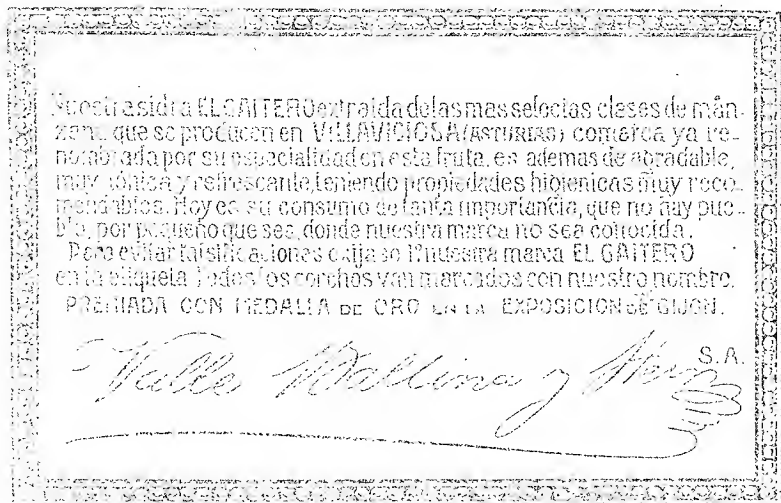 Nuestra sidra EL GAITERO extraida de las mas selectas clases de man-
zana que se producen en VILLAVICIOSA (ASTURIAS) comarca ya re-
nombrada por su especialidad en esta fruta, es ademas de agradable,
muy tónica y refrescante, teniendo propiedades higienicas muy reco-
mendables. Hoy es su consumo de tanta importancia, que no hay pue-
blo, por pequeño que sea, donde nuestra marca no sea conocida.
Para evitar falsificaciones exijase nuestra marca EL GAITERO
en la etiqueta Todos los corchos van marcados con nuestro nombre.
PREMIADA CON MEDALLA DE ORO EN LA EXPOSICION DE GIJON.
Valle Ballina y
S.A.